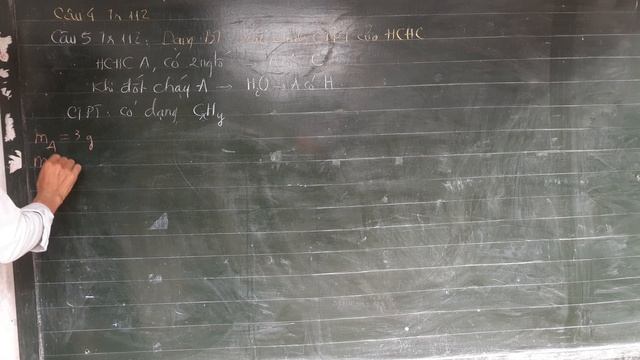 Câu 4 Tr 112
Câu 5 Tr 112: Dạng BT CTPT của HCHC
HCHC A, có 2 ngtố C
Khi đốt cháy A → H₂O → A có H
CTPT: có dạng CₓHy
m_A = 3 g
m